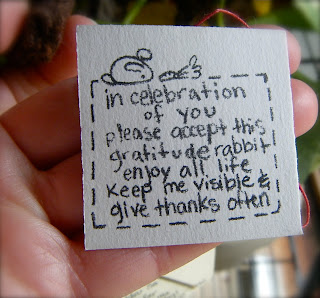 in celebration
of you
please accept this
gratitude rabbit
enjoy all life
keep me visible &
give thanks often